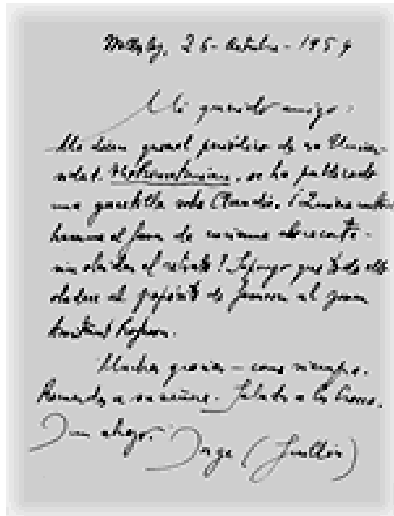 Wellesley, 26 - Octubre - 1959
Mi querido amigo:
Me dicen que en el periódico de su Univer-
sidad, se ha publicado
una gacetilla sobre Claudio. ¿Quiere usted
hacerme el favor de enviarme ese recorte -
sin olvidar el retrato? Supongo que todo ello
obedece al propósito de
Muchas gracias - como siempre.
Recuerdos a su señora. Saludos a los
Un abrazo.
Jorge (Guillén)